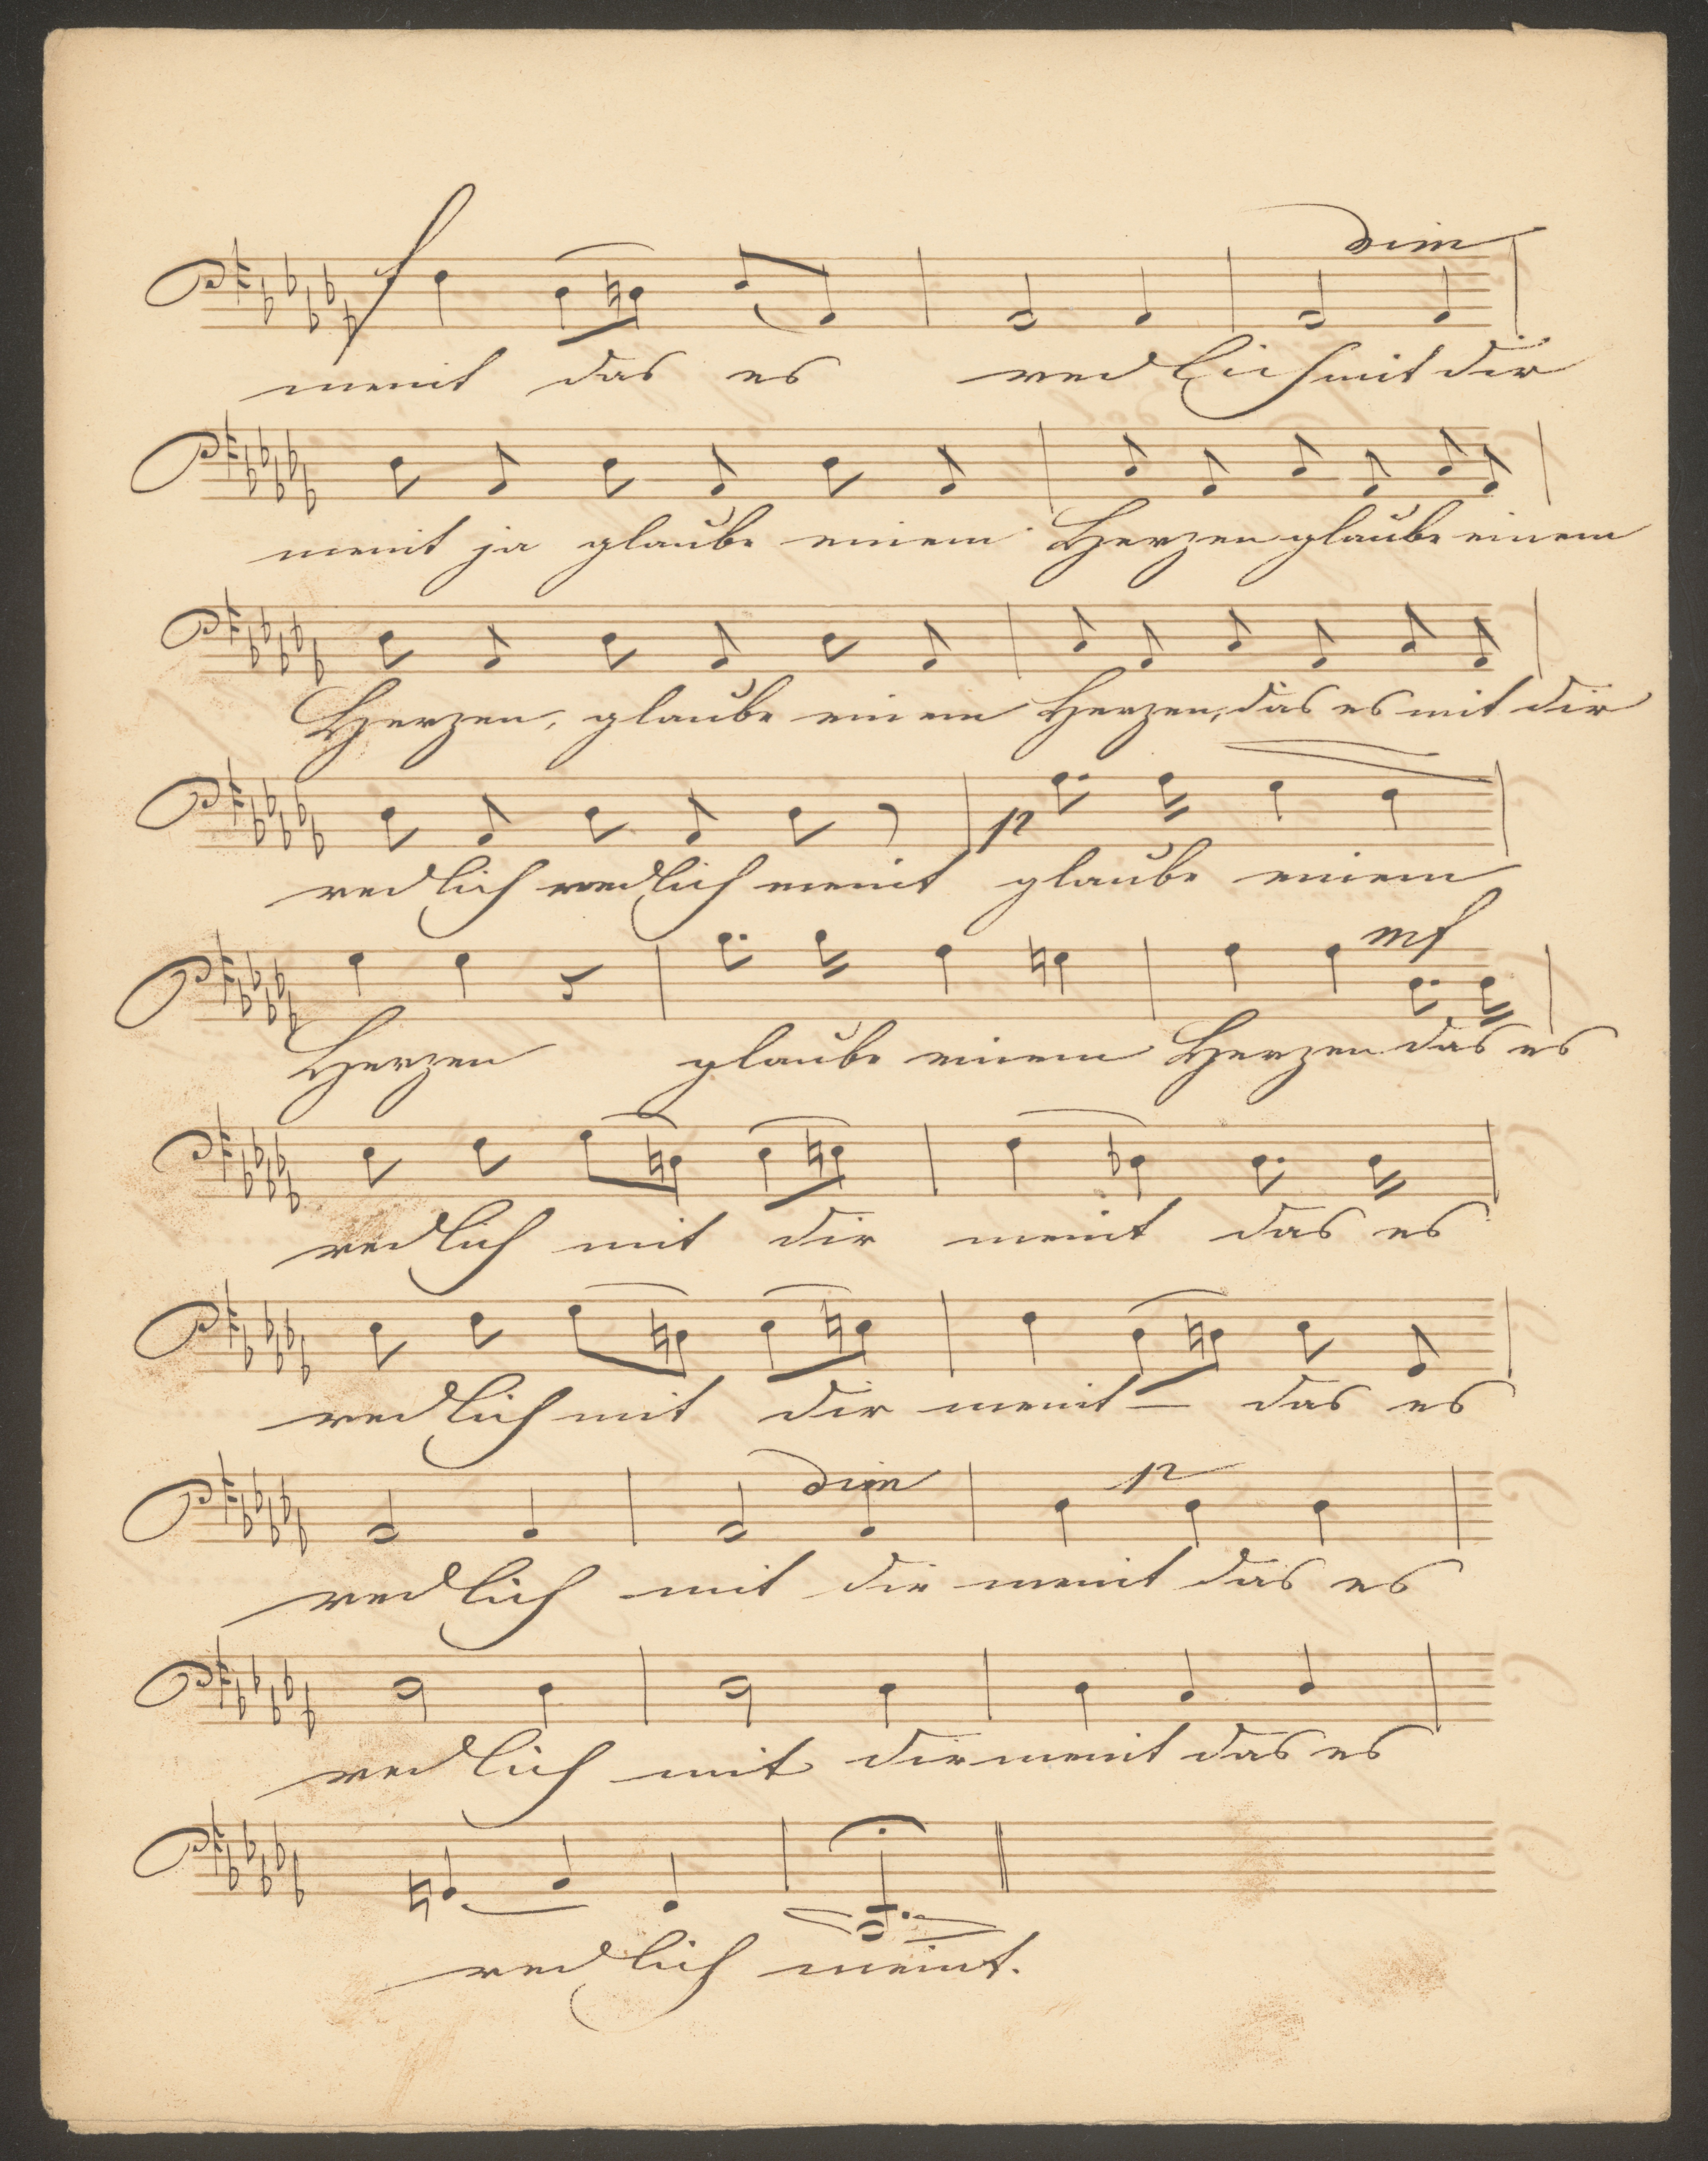 f dim
meint das es redlich mit dir
meint ja glaube einem Herzen glaube einem
Herzen, glaube einem Herzen, das es mit dir
p
redlich redlich meint glaube einem
mf
Herzen glaube einem Herzen das es
redlich mit dir meint das es
redlich mit dir meint — das es
dim p
redlich mit dir meint das es
redlich mit dir meint das es
redlich meint.